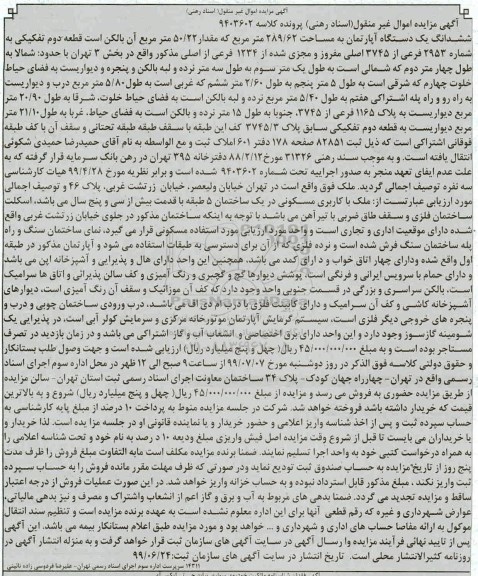 آگهی مزایده اموال غیر منقول( اسناد رهنی)
آگهی مزایده اموال غیر منقول(اسناد رهنی) پرونده کلاسه ۹۴۰۳۶۰۲
ششدانگ یک دستگاه آپارتمان به مساحت ۲۸۹/۶۲ متر مربع که مقدار ۵۰/۲۲ متر مربع آن بالکن است قطعه دوم تفکیکی به
شماره ۲۹۵۳ فرعی از ۳۷۴۵ اصلی مفروز و مجزی شده از ۱۲۳۴ فرعی از اصلی مذکور واقع در بخش ۳ تهران با حدود: شمالا به
طول چهار متر دوم که شمالی است به طول یک متر سوم به طول سه متر نرده و لبه بالکن و پنجره و دیواریست به فضای حیاط
خلوت چهارم که شرقی است به طول ۵ متر پنجم به طول ۲/۶۰ متر ششم که غربی است به طول ۵/۸۰ متر مربع درب و دیواریست
به راه رو و راه پله اشتراکی هفتم به طول ۵/۴۰ متر مربع نرده و لبه بالکن است به فضای حیاط خلوت، شرقا به طول ۲۰/۹۰ متر
مربع دیواریست به پلاک ۱۱۶۵ فرعی از ۳۷۴۵، جنوبا به طول ۱۵ متر نرده و بالکن است به فضای حیاط، غربا به طول ۲۱/۱۰ متر
مربع دیواریست به قطعه دوم تفکیکی سابق پلاک ۳۷۴۵/۳ کف این طبقه با سقف طبقه تحتانی و سقف آن با کف طبقه
فوقانی اشتراکی است که ذیل ثبت ۸۲۸۵۱ صفحه ۱۷۸ دفتر ۶۰۱ املاک ثبت و مع الواسطه به نام آقای حمیدرضا حمیدی شکوئی
انتقال یافته است. و به موجب سند رهنی ۳۱۳۲۶ مورخ ۸۸/۲/۱۲ دفترخانه ۳۹۵ تهران در رهن بانک سرمایه قرار گرفته که به
علت عدم ایفای تعهد منجر به صدور اجراییه تحت شماره ۹۴۰۳۶۰۲ شده است و برابر نظریه مورخ ۹۹/۴/۲۸ هیات کارشناسی
سه نفره توصیف اجمالی گردید. ملک فوق واقع است در تهران خیابان ولیعصر، خیابان زرتشت غربی، پلاک ۴۶ و توصیف اجمالی
مورد ارزیابی عبارتست از: ملک با کاربری مسکونی در یک ساختمان ۵ طبقه با قدمت بیش از سی و پنج سال می باشد، اسکلت
ساختمان فلزی و سقف طاق ضربی با تیر آهن می باشد با توجه به اینکه ساختمان مذکور در جلوی خیابان زرتشت غربی واقع
شده دارای موقعیت اداری و تجاری است و واحد مورد ارزیابی مورد استفاده مسکونی قرار می گیرد، نمای ساختمان سنگ و راه
پله ساختمان سنگ فرش شده است و نرده فلزی دارد که از آن برای دسترسی به طبقات استفاده می شود و آپارتمان مذکور در طبقه
اول واقع شده ودارای چهار اتاق خواب و دارای کمد می باشد. همچنین این واحد دارای هال و پذیرایی و آشپزخانه اپن می باشد
و دارای حمام با سرویس ایرانی و فرنگی است، پوشش دیوارها گچ و گچبری و رنگ آمیزی و کف سالن پذیرائی و اتاق ها سرامیک
است، بالکن سراسری و بزرگی در قسمت جنوبی واحد وجود دارد که کف آن موزاییک و سقف آن رنگ آمیزی است، دیوارهای
آشپزخانه کاشی و کف آن سرامیک و دارای کابینت فلزی با درب ام دی اف می باشد، درب ورودی ساختمان چوبی و درب و
پنجره های خروجی دیگر فلزی است، سیستم گرمایش آپارتمان موتورخانه مرکزی و سرمایش کولر آبی است، در پذیرایی یک
شومینه گازسوز وجود دارد و این واحد دارای برق اختصاصی و انشعاب آب و گاز اشتراکی می باشد و در زمان بازدید در تصرف
مستاجر بوده است و به مبلغ ۴۵/۰۰۰/۰۰۰/۰۰۰ ریال( چهل و پنج میلیارد ریال) ارزیابی شده است و جهت وصول طلب بستانکار
و حقوق دولتی کلاسه فوق الذکر در روز دوشنبه مورخ ۹۹/۰۷/۰۷ از ساعت ۹ صبح الی ۱۲ ظهر در محل اداره سوم اجرای اسناد
رسمی واقع در تهران – چهارراه جهان کودک – پلاک ۳۴ ساختمان معاونت اجرای اسناد رسمی ثبت استان تهران– سالن مزایده
از طریق مزایده حضوری به فروش می رسد و مزایده از مبلغ ۴۵/۰۰۰/۰۰۰/۰۰۰ ریال( چهل و پنج میلیارد ریال) شروع و به بالاترین
قیمت که خریدار داشته باشد فروخته خواهد شد. شرکت در جلسه مزایده منوط به پرداخت ۱۰ درصد از مبلغ پایه کارشناسی به
حساب سپرده ثبت و پس از اخذ شناسه واریز اعلامی و حضور خریدار و یا نماینده قانونی او در جلسه مزایده است. لذا خریدار و
یا خریداران می بایست تا قبل از شروع وقت مزایده اصل فیش واریزی مبلغ ودیعه ۱۰ درصد به نام خود و تحت شناسه اعلامی را
به همراه درخواست کتبی خود به واحد اجرا تسلیم نمایند. ضمنا برنده مزایده مکلف است مابه التفاوت مبلغ فروش را ظرف مدت
پنج روز از تاریخ مزایده به حساب صندوق ثبت تودیع نماید ودر صورتی که ظرف مهلت مقرر مانده فروش را به حساب سپرده
ثبت واریز نکند ، مبلغ مذکور قابل استرداد نبوده و به حساب خزانه واریز خواهد شد. در این صورت عملیات فروش از درجه اعتبار
ساقط و مزایده تجدید می گردد. ضمنا بدهی های مربوط به آب و برق و گاز اعم از انشعاب واشتراک و مصرف و نیز بدهی مالیاتی،
عوارض شهرداری و غیره که رقم قطعی آنها برای این اداره معلوم نشده است به عهده برنده مزایده است و تنظیم سند انتقال
موکول به ارائه مفاصا حساب های اداری و شهرداری و ... خواهد بود و مورد مزایده طبق اعلام بستانکار بیمه می باشد. این آگهی
پس از تایید نهائی فرآیند مزایده وارسال آگهی در سایت آگهی های سازمان ثبت قرار خواهد گرفت و به منزله انتشار آگهی در
روزنامه کثیرالانتشار محلی است. تاریخ انتشار در سایت آگهی های سازمان ثبت: ۹۹/۰۶/۲۴
۱۴۳۱۱ سرپرست اداره سوم اجرای اسناد رسمی تهران– علیرضا فردوسی زاده نائینی